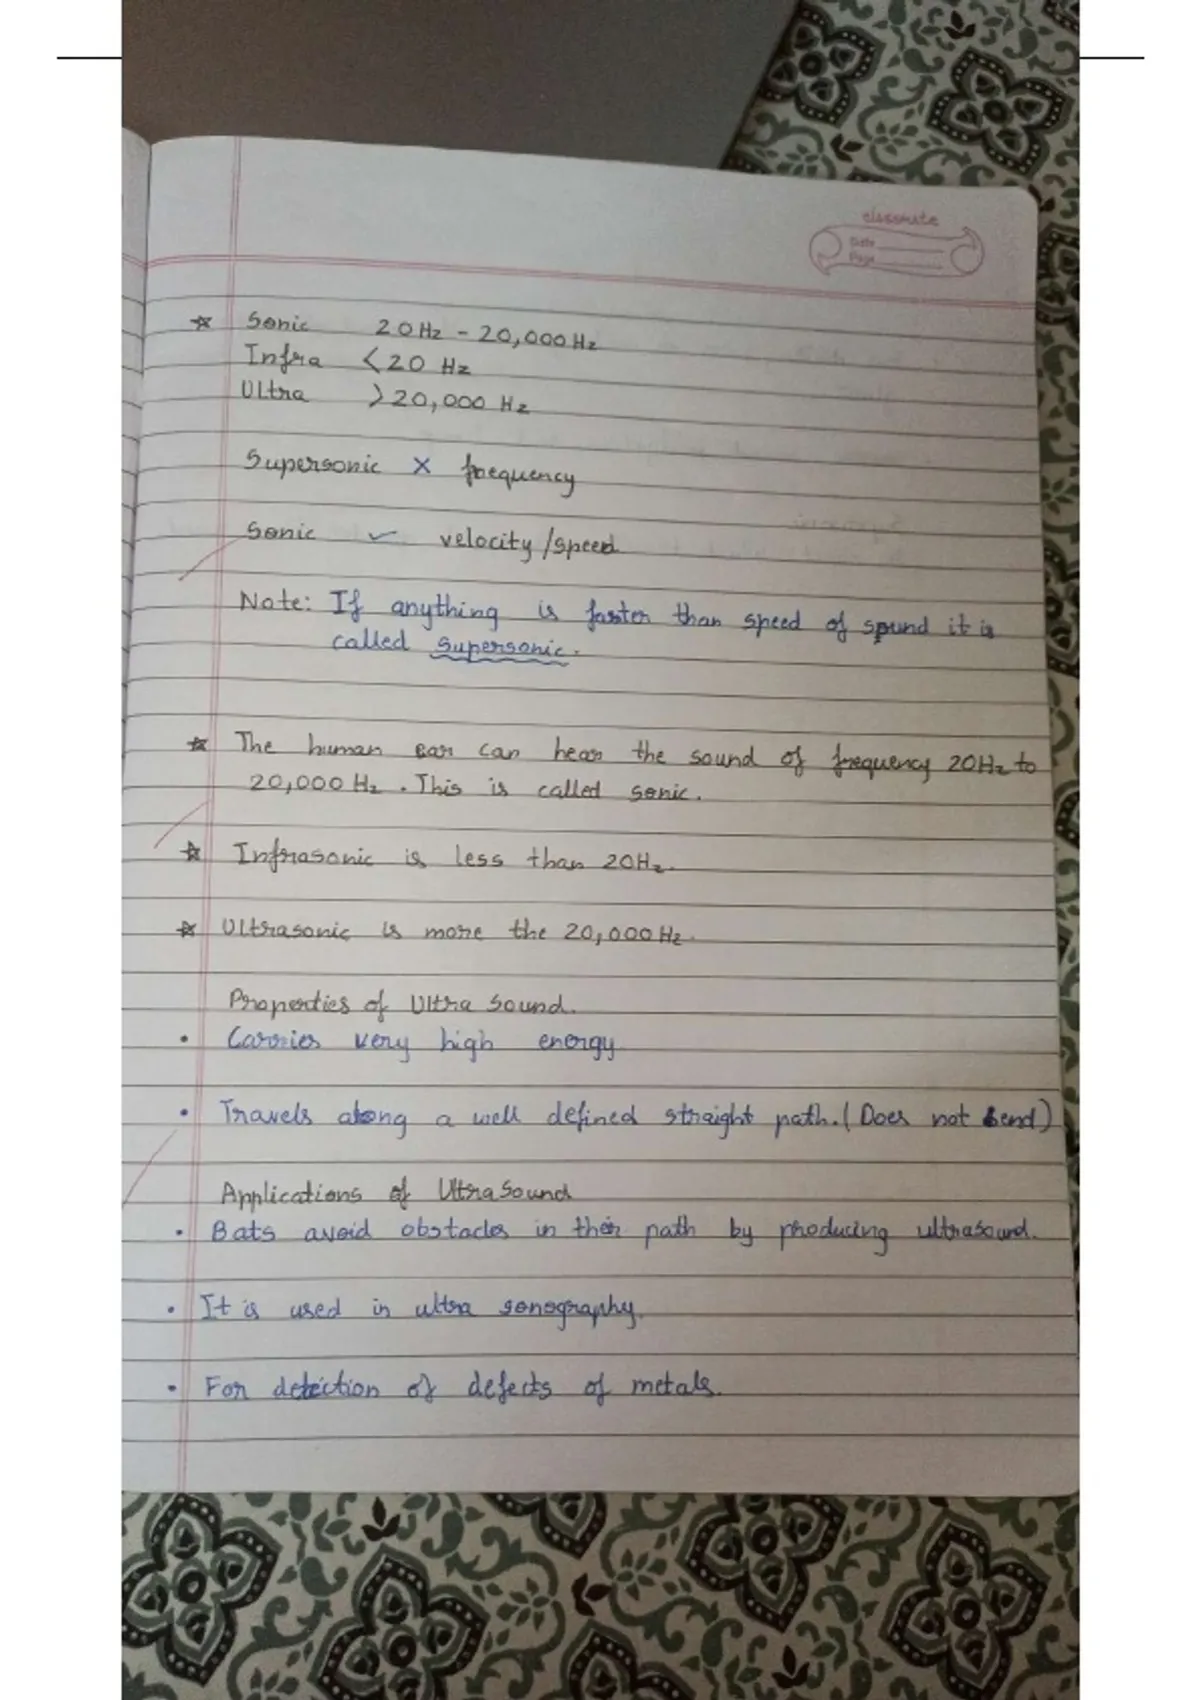 classmate
Date
Page
☆ Sonic 20Hz - 20,000Hz
Infra <20 Hz
Ultra >20,000 Hz
Supersonic × frequency
Sonic ✓ velocity/speed
Note: If anything is faster than speed of sound it is
called supersonic.
☆ The human ear can hear the sound of frequency 20Hz to
20,000 Hz. This is called sonic.
☆ Infrasonic is less than 20Hz.
☆ Ultrasonic is more the 20,000Hz.
Properties of Ultra Sound.
• Carries very high energy.
• Travels along a well defined straight path. (Does not bend)
Applications of UltraSound
• Bats avoid obstacles in their path by producing ultrasound.
• It is used in ultra sonography.
• For detection of defects of metals.